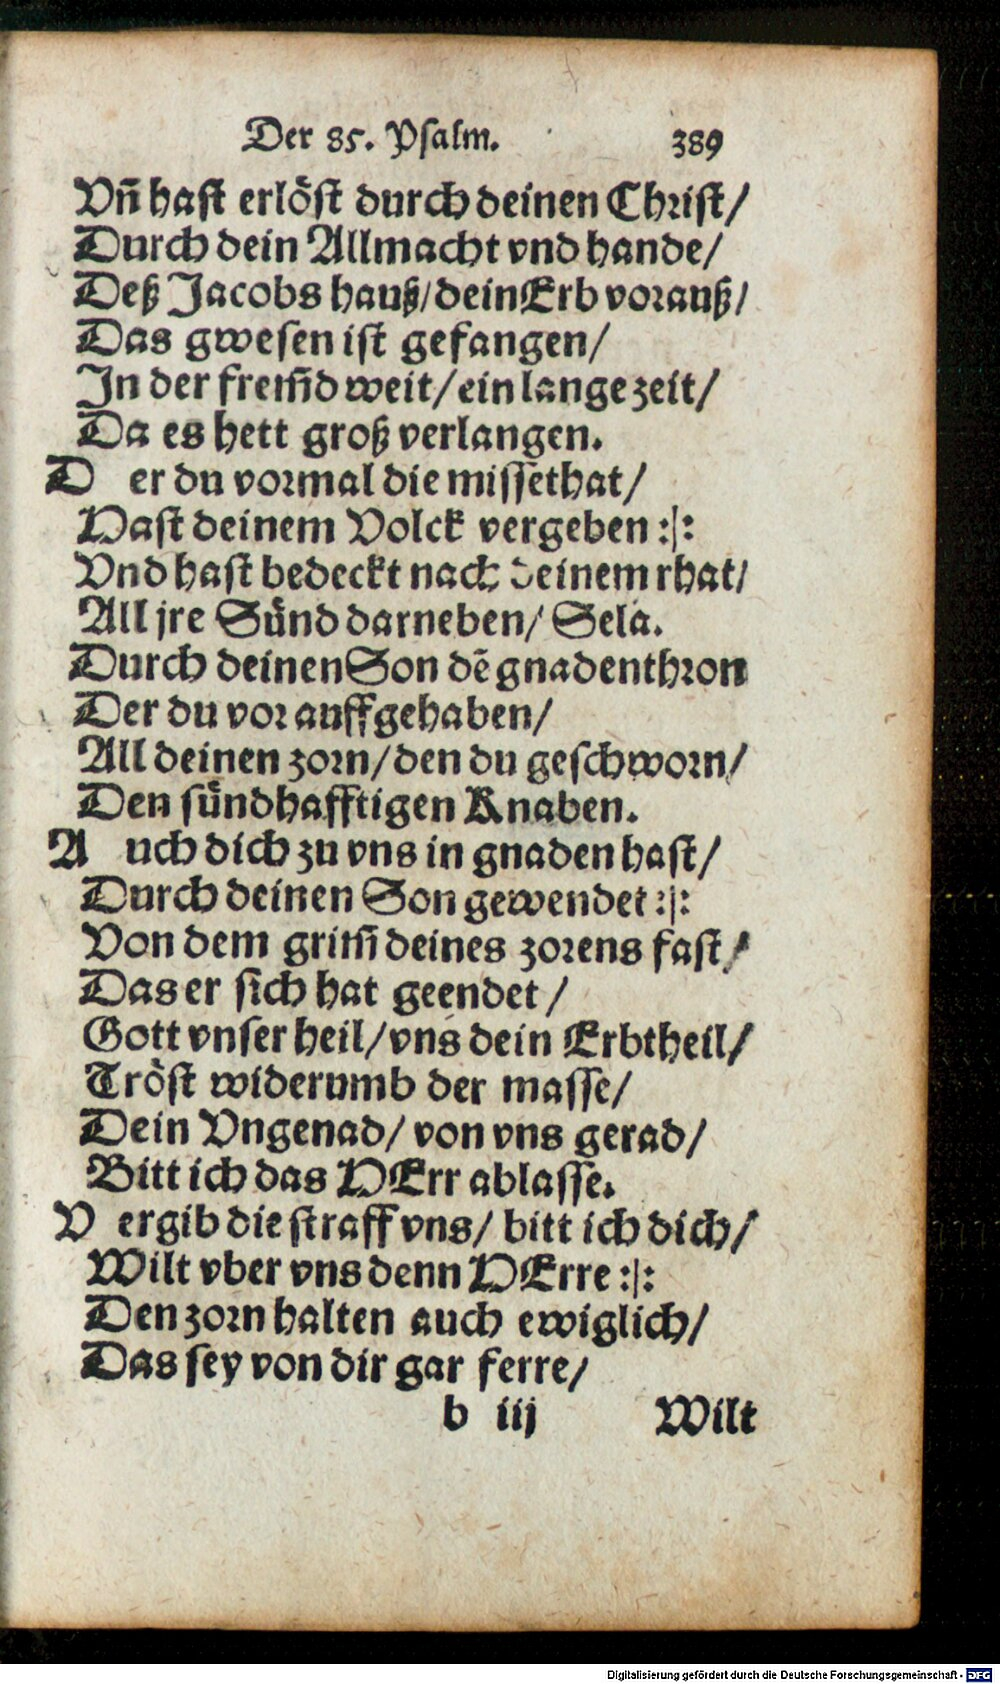 Der 85. Psalm. 389
Vñ hast erlöst durch deinen Christ/
Durch dein Allmacht vnd hande/
Deß Jacobs hauß/dein Erb vorauß/
Das gwesen ist gefangen/
In der frem̃d weit/ein lange zeit/
Da es hett groß verlangen.
D er du vormal die missethat/
Hast deinem Volck vergeben :|:
Vnd hast bedeckt nach deinem rhat/
All jre Sünd darneben/ Sela.
Durch deinen Son dē gnadenthron
Der du vor auffgehaben/
All deinen zorn/den du geschworn/
Den sündhafftigen Knaben.
A uch dich zu vns in gnaden hast/
Durch deinen Son gewendet :|:
Von dem grim̃ deines zorens fast/
Das er sich hat geendet/
Gott vnser heil/vns dein Erbtheil/
Tröst widerumb der masse/
Dein Vngenad/ von vns gerad/
Bitt ich das HErr ablasse.
V ergib die straff vns/ bitt ich dich/
Wilt vber vns denn HErre :|:
Den zorn halten auch ewiglich/
Das sey von dir gar ferre/
b iij Wilt
Digitalisierung gefördert durch die Deutsche Forschungsgemeinschaft - DFG